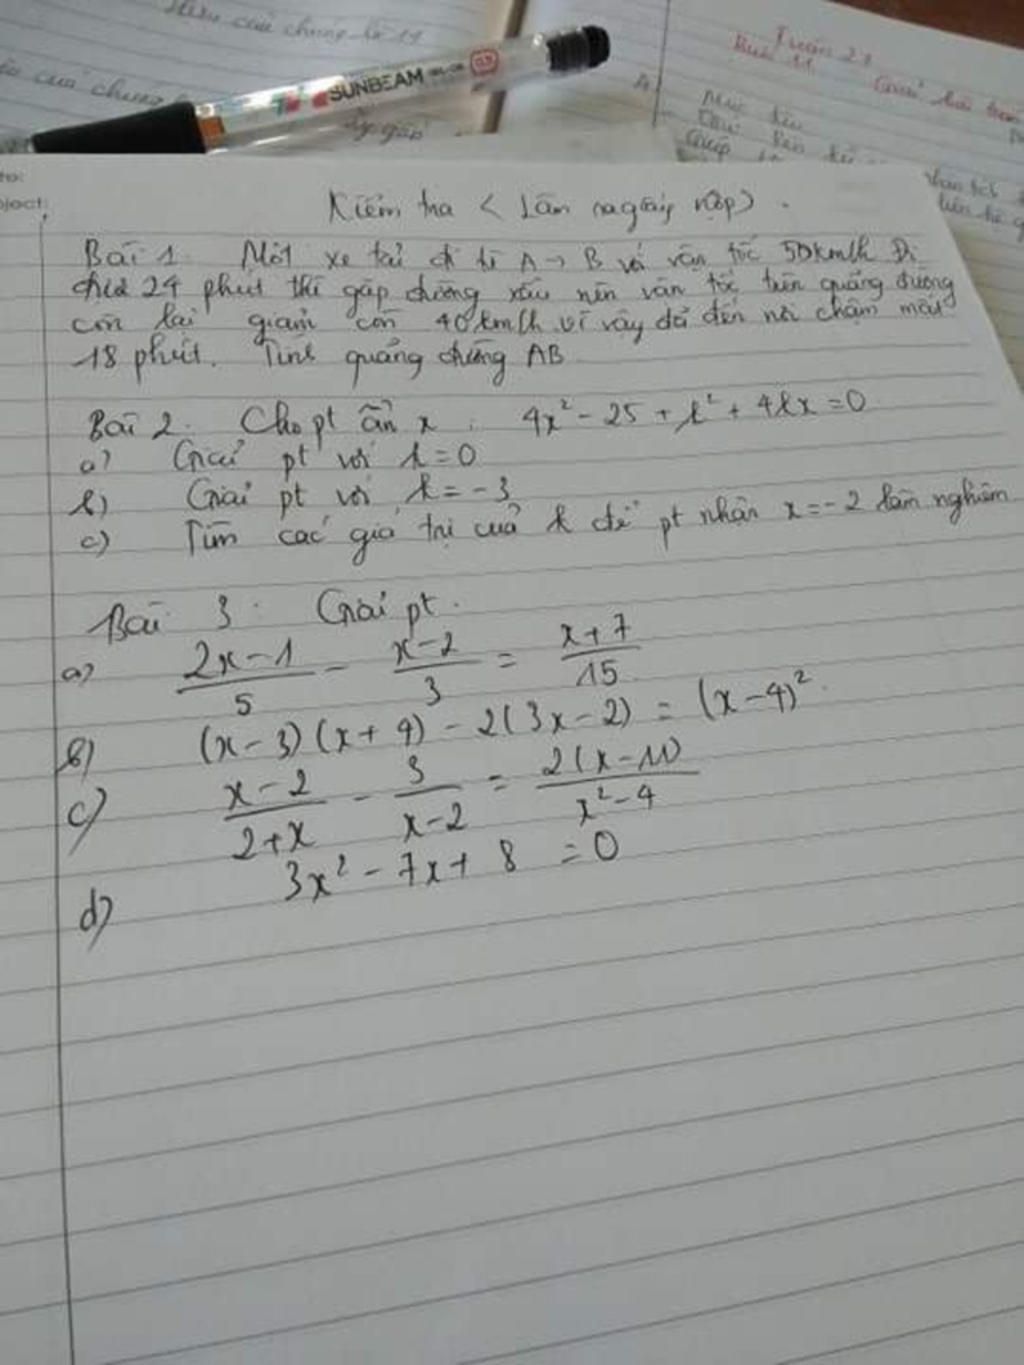 của chúng
SUNBEAM
Tuần 21
Mục tiêu
Kiểm tra (Làm ra giấy nộp).
Bài 1. Một xe tải đi từ A → B với vận tốc 50km/h. Đi
được 24 phút thì gặp đường xấu nên vận tốc trên quãng đường
còn lại giảm còn 40km/h vì vậy đã đến nơi chậm mất
18 phút. Tính quãng đường AB
Bài 2. Cho pt ẩn x : 4x² - 25 + k² + 4kx = 0
a) Giải pt với k = 0
b) Giải pt với k = -3
c) Tìm các giá trị của k để pt nhận x = -2 làm nghiệm
Bài 3. Giải pt.
a) (2x-1)/5 - (x-2)/3 = (x+7)/15
b) (x-3)(x+4) - 2(3x-2) = (x-4)²
c) (x-2)/(2+x) - 3/(x-2) = 2(x-11)/(x²-4)
d) 3x² - 7x + 8 = 0